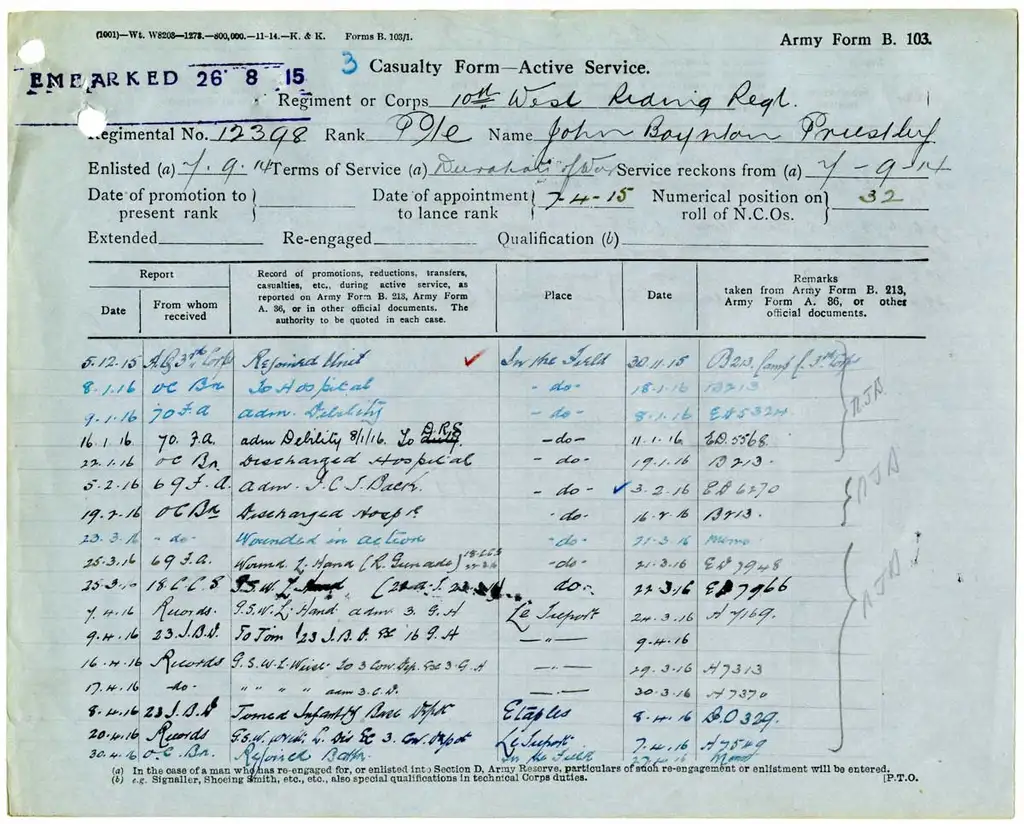 (1001)—Wt. W8203—1273.—800,000.—11-14.—K. & K. Forms B. 103/1.
Army Form B. 103.
EMBARKED 26 8 15
3 Casualty Form—Active Service.
Regiment or Corps 10th West Riding Regt.
Regimental No. 12398 Rank Pte Name John Boynton Priestley
Enlisted (a) 7.9.14 Terms of Service (a) Duration of War Service reckons from (a) 7-9-14
Date of promotion to present rank Date of appointment to lance rank 7-4-15 Numerical position on roll of N.C.Os. 32
Extended Re-engaged Qualification (b)
Report
Date
From whom received
Record of promotions, reductions, transfers, casualties, etc., during active service, as reported on Army Form B. 213, Army Form A. 36, or in other official documents. The authority to be quoted in each case.
Place
Date
Remarks taken from Army Form B. 213, Army Form A. 36, or other official documents.
5.12.15 Rejoined Unit In the Field 30.11.15 B213
8.1.16 OC Bn To Hospital -do- 18.1.16 B213
9.1.16 70 F.A adm. Debility -do- 8.1.16 ED5324
16.1.16 70. F.A. adm Debility 8/1/16. To D.R.S -do- 11.1.16 ED.5568
22.1.16 OC Bn Discharged Hospital -do- 19.1.16 B213.
5.2.16 69 F.A. adm. I.C.T. Back. -do- 3.2.16 ED6270
19.2.16 OC Bn Discharged Hospl -do- 16.2.16 B213.
23.3.16 -do- Wounded in action -do- 21.3.16 Memo
25.3.16 69 F.A. Wound L. Hand (R. Grenade) -do- 21.3.16 ED7948
25.3. 18.C.C.S G.S.W. L. Hand do. 22.3.16 ED7966
7.4.16 Records. G.S.W. L. Hand adm 3. G.H Le Treport 24.3.16 A7169.
9.4.16 23 I.B.D. 23 I.B.D. Ex 16 G.H —"— 9.4.16
16.4.16 Records G.S.W. L. Wrist To 3 Con. Dep. Ex 3 G.H —"— 29.3.16 A7313
17.4.16 -do- " " " " adm 3.C.D. —"— 30.3.16 A7370
8.4.16 23 I.B.D Joined Infantry Base Depot Etaples 8.4.16 D.O329.
20.4.16 Records G.S.W. Wrist L. Dis Ex 3. Con Depot Le Treport 7.4.16 A7549
30.4.16 O.C. Bn. Rejoined Battn. In the Field 27.4.16
(a) In the case of a man who has re-engaged for, or enlisted into Section D, Army Reserve, particulars of such re-engagement or enlistment will be entered.
(b) e.g. Signaller, Shoeing Smith, etc., etc., also special qualifications in technical Corps duties. [P.T.O.